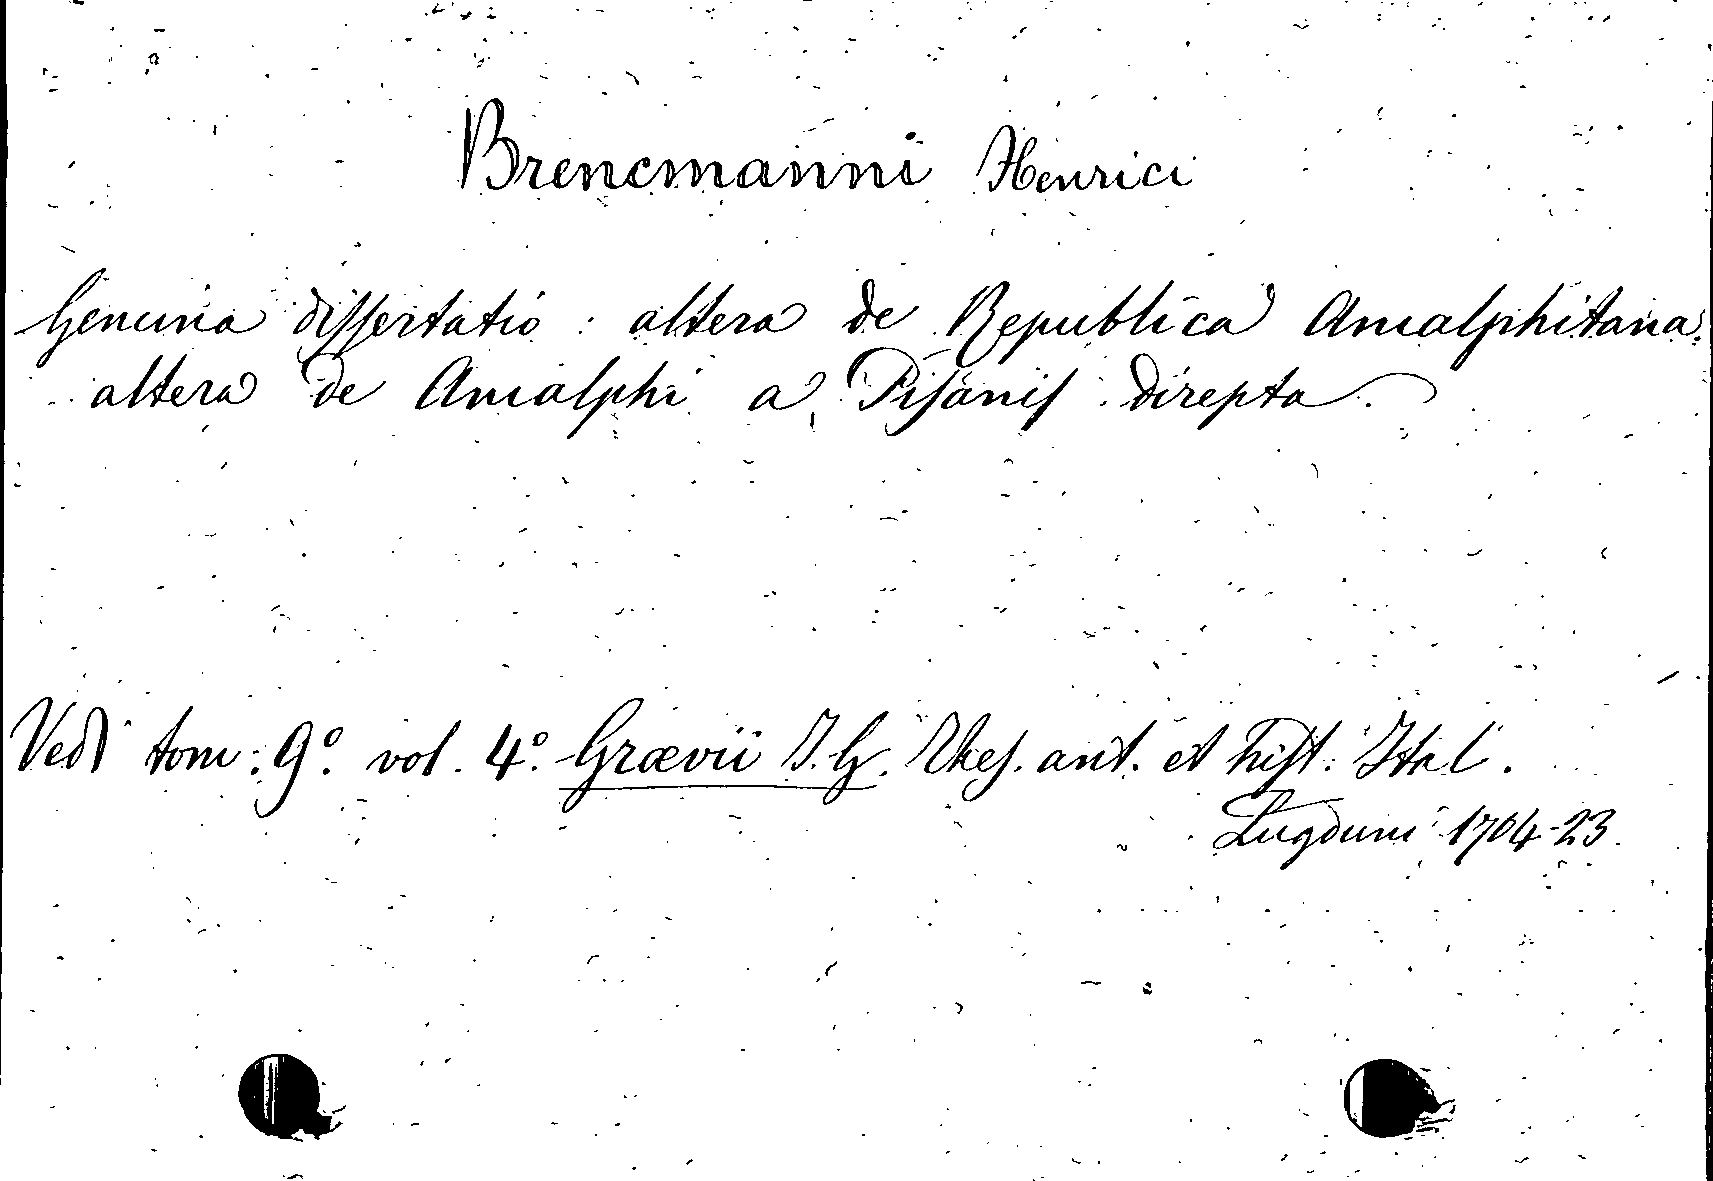 Brencmanni Henrici
Genuina dissertatio: altera de Republica Amalphitana,
altera de Amalphi a Pisanis direpta.
Vedi tom: 9º. vol. 4º. Grævii J. G. Thes. ant. et hist. Ital.
Lugduni 1704-23.